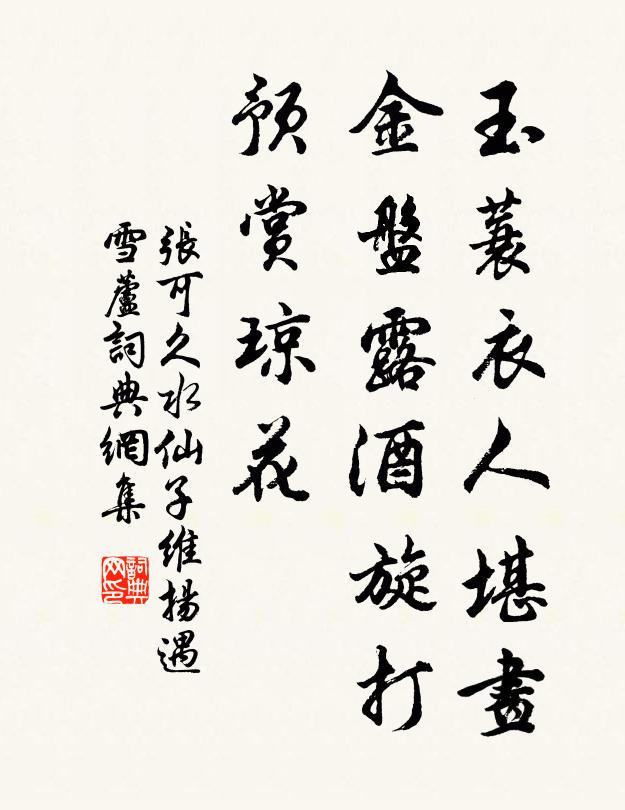 玉蓑衣人堪畫
金盤露酒旋打
預賞瓊花
張可久水仙子維揚遇
雪蘆詞典網集
詞典網印